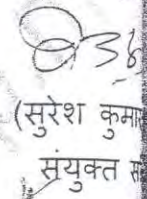 (सुरेश कुमार
संयुक्त स